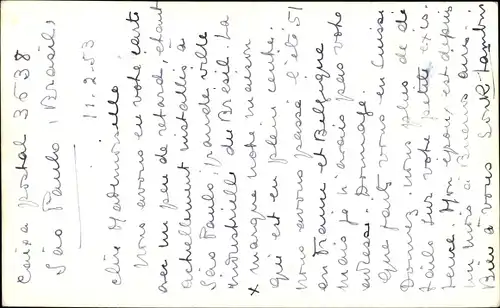 Caixa postal 3538
São Paulo, Brasil,
11.2.53
chère Mademoiselle.
Nous avons eu votre carte
avec un peu de retard, étant
actuellement installés a
São Paulo, grande ville
industrielle du Brésil. La
x marque notre maison
qui est en plein centre.
Nous avons passé l'été 51
en France et Belgique
mais je n'avais pas votre
adresse. Domage.
Que faites vous en Suisse
Donnez nous plus de dé-
tails sur votre petite exis-
tence. Mon époux est depuis
un mois a Buenos Aires.
Bien a vous